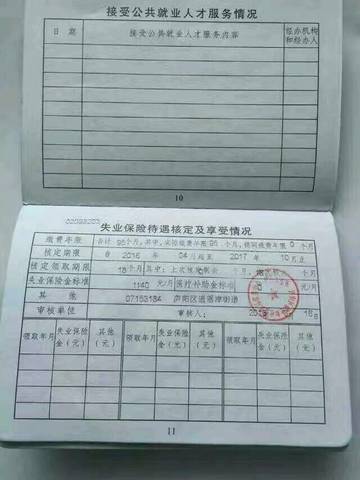 接受公共就业人才服务情况
日期 接受公共就业人才服务内容 经办机构和经办人
10
失业保险待遇核定及享受情况
缴费年限 合计 96个月,其中,实际缴费年限 96 个月,视同缴费年限 0 个月
核定期限 2016 年 04月起至 2017 年 10月止
核定领取期限 18个月其中:上次核定剩余 个月
失业保险金标准 1140 元/月医疗补助金标准 元/月
其他 07153184
审核单位 审核人:
领取年月 失业保险金(元) 其他(元) 领取年月 失业保险金(元) 其他(元) 领取年月 失业保险金(元) 其他(元)
11